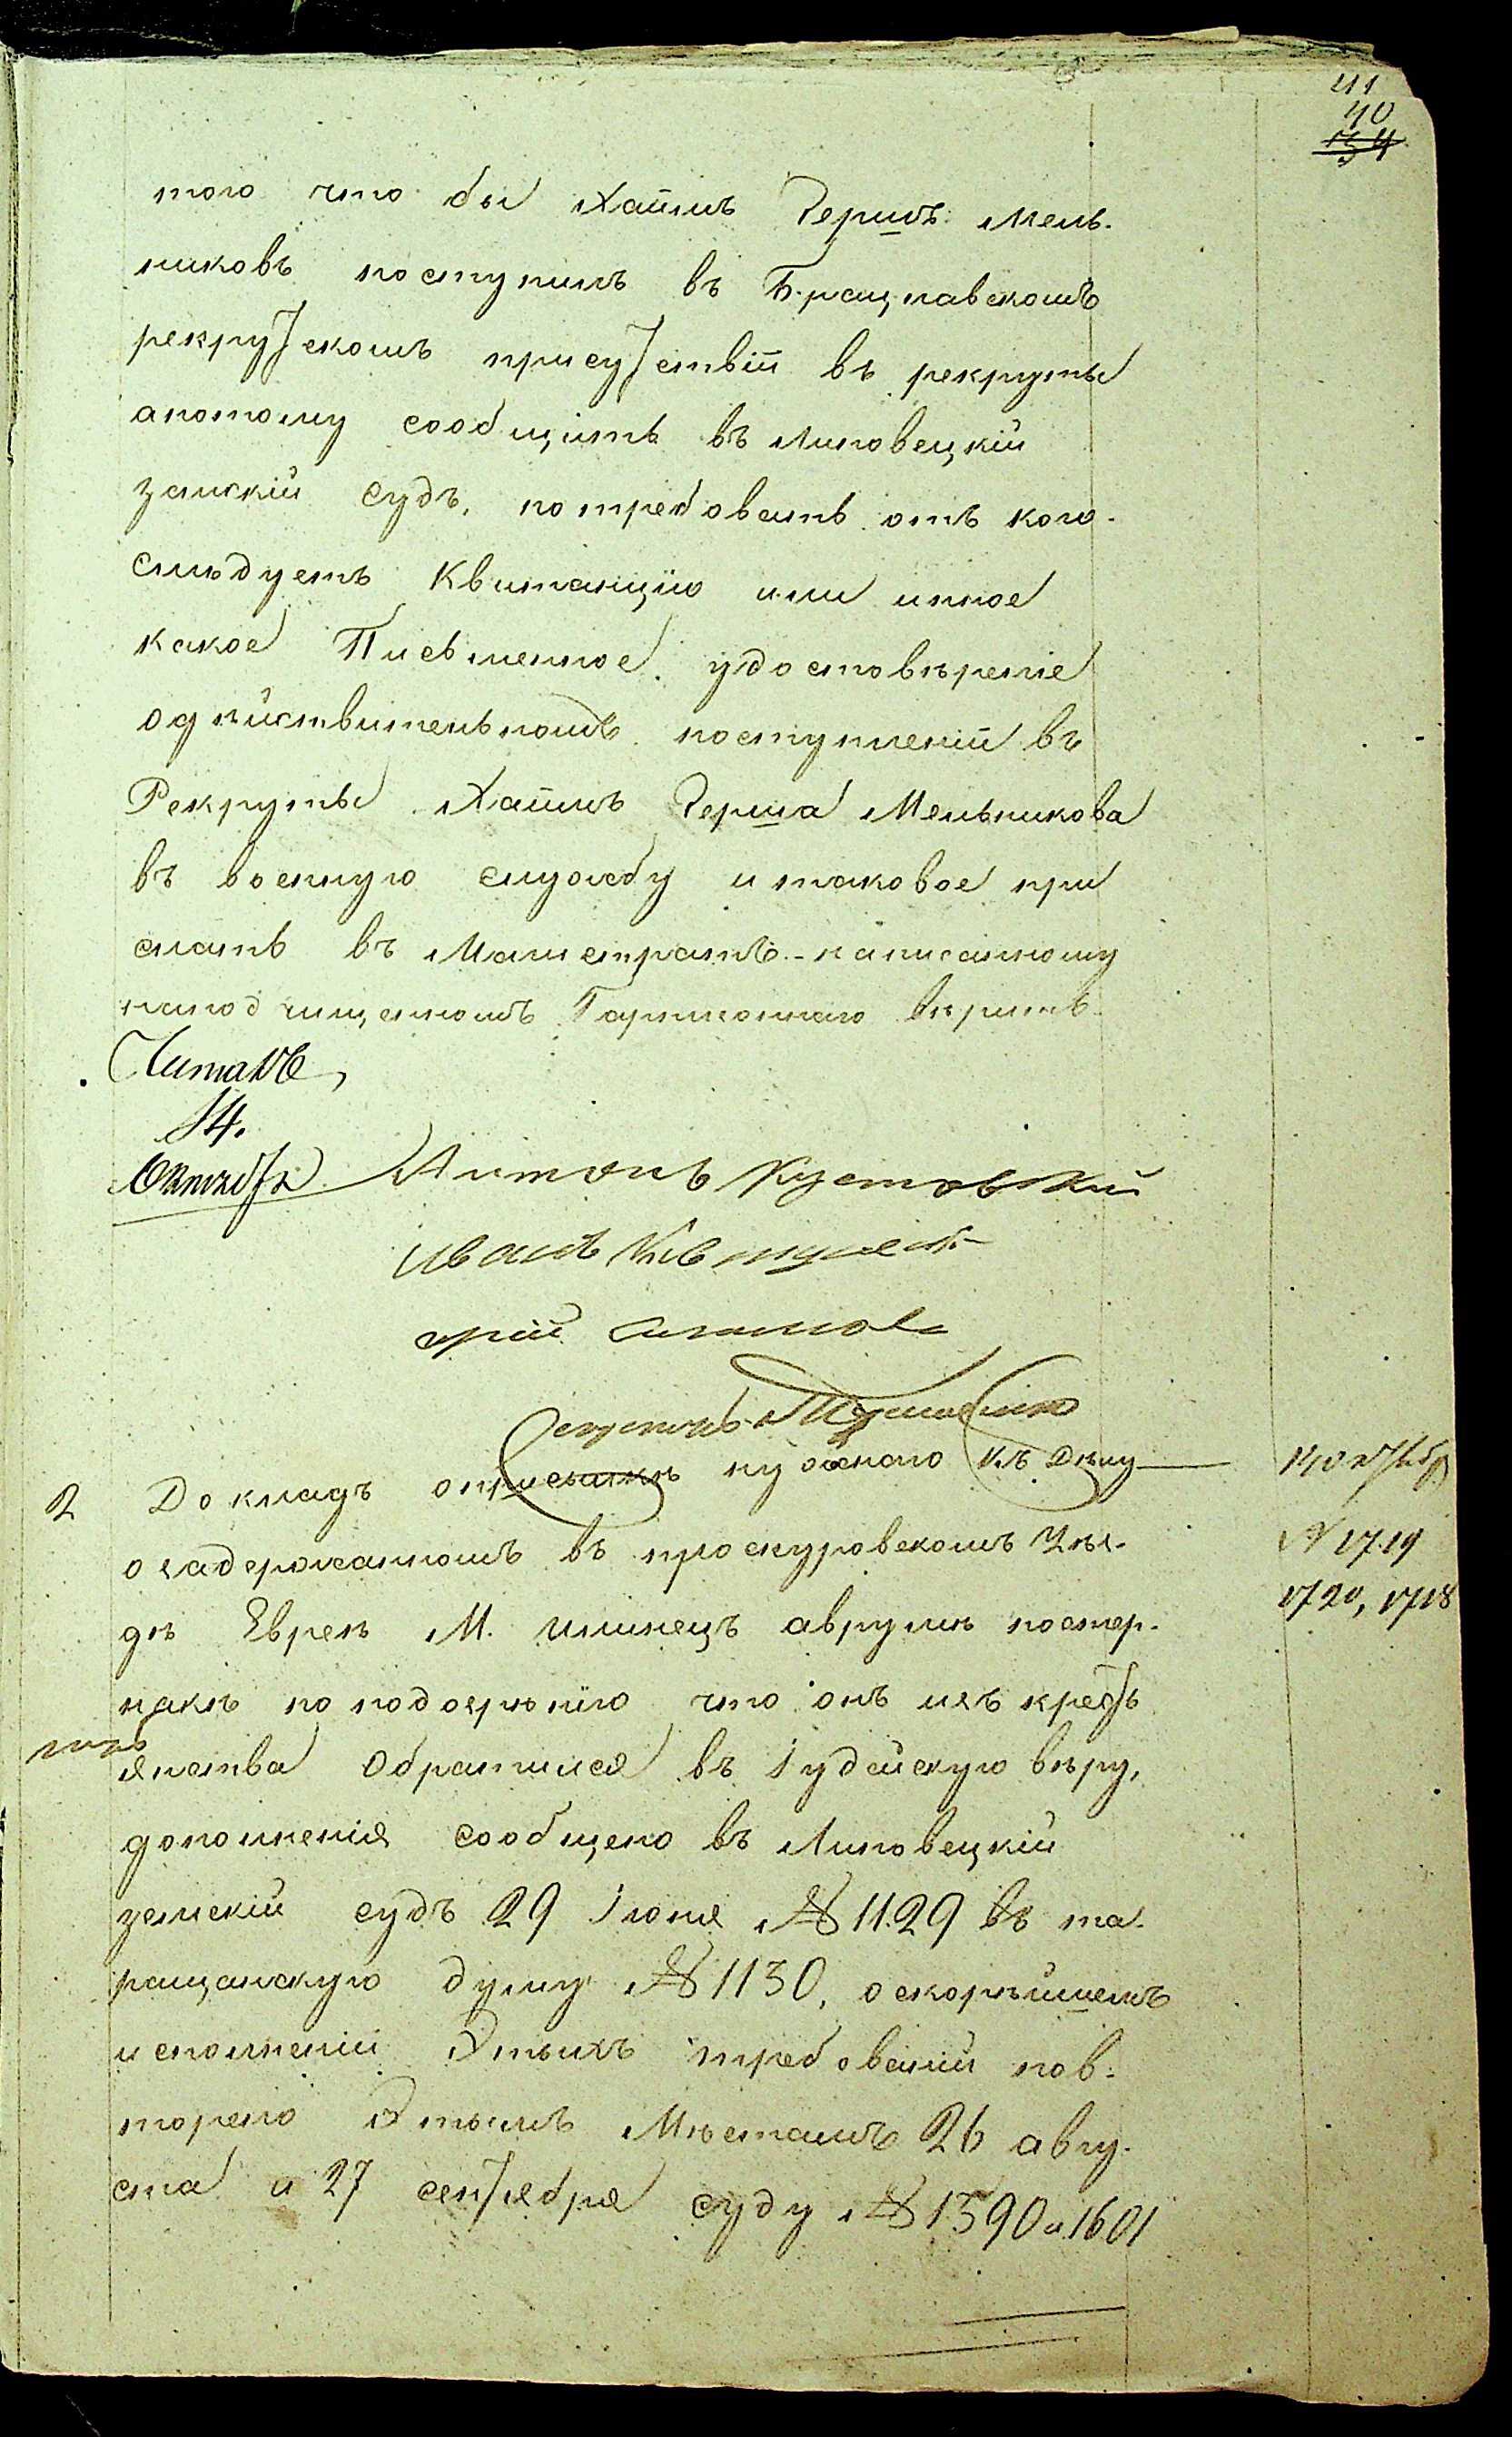 41
40
54
того что бы Хаимъ Гершъ Мель-
никовъ поступилъ въ Брацлавскомъ
рекрутскомъ присутствіи въ рекруты
апотому сообщить въ Липовецкій
земскій судъ, потребовать отъ кого
слѣдуетъ квитанцію или иное
какое Письменное удостовѣреніе
одѣйствительномъ поступленіи въ
Рекруты Хаимъ Герша Мельникова
въ военную службу итаковое при
слать въ Магистратъ - написанному
наподчищенномъ вѣрить
Читалъ
14.
Октября
Антонъ Кустовскій
Иванъ
2 Докладъ оприсылкѣ нужнаго Къ Дѣлу
озадержанномъ въ проскуровскомъ Уѣз-
дѣ Евреѣ М. Илинецъ аврумѣ постер-
накѣ поподозрѣнію что онъ изъ крестъ
янства Обратился въ Іудейскую вѣру,
дополненія сообщено въ Липовецкій
земскій судъ 29 Іюня № 1129 въ та-
ращанскую думу № 1130, оскорѣйшемъ
исполненіи Этыхъ требованій пов-
торено Этымъ Мѣстамъ 26 авгу-
ста и 27 сентября суду № 1590 и 1601
14 октябр
№ 1719
1720, 1718